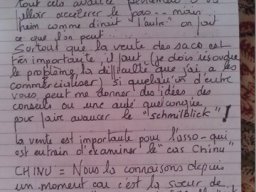 Tout cela avance
aller accélérer le pas... mais
hein comme dirait "l'autre" on fait
ce que l'on peut....
Surtout que la vente des sacs est
très importante, il faut (je dois résoudre
le problème, la difficulté que j'ai à les
commercialiser) Si quelqu'un d'entre
vous peut me donner des idées, des
conseils ou une aide quelconque
pour faire avancer le "schmilblick"!
La vente est importante pour l'asso - qui
est en train d'examiner le "cas Chinu"
CHINU = Nous la connaissons depuis
un moment car c'est la sœur de...